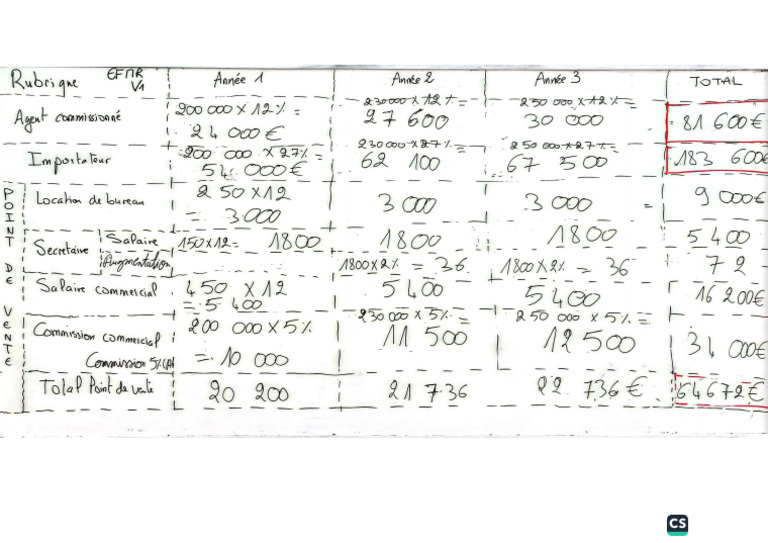 Rubrique EFMR V1 Année 1 Année 2 Année 3 TOTAL
Agent commissionné 200 000 x 12 % = 24 000 € 230000 x 12 % = 27 600 250 000 x 12 % = 30 000 81 600 €
Importateur 200 000 x 27% = 54 000 € 230000 x 27 % = 62 100 250 000 x 27 % = 67 500 183 600€
POINT DE VENTE
Location de bureau 250 x 12 = 3000 3000 3000 = 9 000€
Secretaire Salaire 150 x 12 = 1800 1800 1800 5 400
Augmentation 1800 x 2% = 36 1800 x 2% = 36 72
Salaire commercial 450 x 12 = 5 400 5400 5400 16 200€
Commission commercial Commission 5% CA 200 000 x 5% = 10 000 230 000 x 5% = 11 500 250 000 x 5% = 12 500 34 000€
Total Point de vente 20 200 21 736 22 736 € 64 672 €
CS